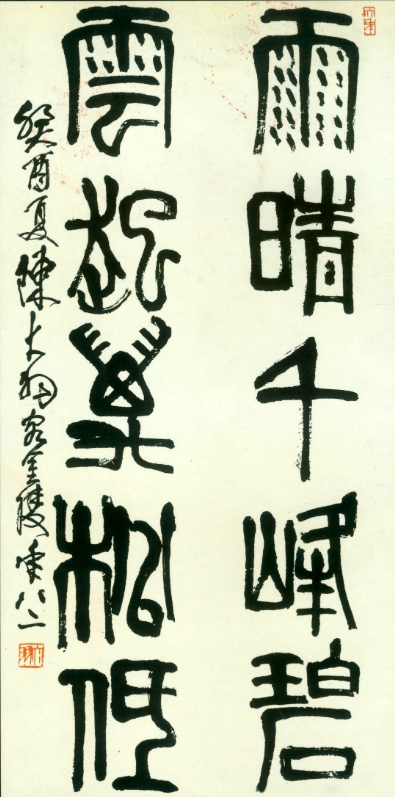 雨晴千峰碧
雲起萬松低
癸酉夏陳大羽客金陵年八二